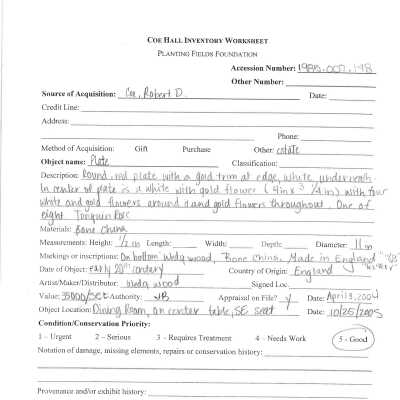 COE HALL INVENTORY WORKSHEET
PLANTING FIELDS FOUNDATION
Accession Number: 1980.002.148
Other Number:
Source of Acquisition: Coe, Robert D. Date:
Credit Line:
Address:
Phone:
Method of Acquisition: Gift Purchase Other: estate
Object name: Plate Classification:
Description: Round, red plate with a gold trim at edge, white underneath
In center of plate is a white with gold flower (4in x 3 1/4 in) with four
white and gold flowers around it and gold flowers throughout. One of
eight. Tonquin Rose
Materials: Bone China
Measurements: Height: 1/2 in Length: Width: Depth: Diameter: 11 in
Markings or inscriptions: On bottom wedgwood, "Bone China, Made in England"
Date of Object: early 20th century Country of Origin: England
Artist/Maker/Distributor: wedgwood Signed Loc.
Value: 35000/set Authority: VB Appraisal on File? y Date: April 3, 2004
Object Location: Dining Room, on center table, SE seat Date: 10/25/2005
Condition/Conservation Priority:
1 – Urgent 2 – Serious 3 - Requires Treatment 4 – Needs Work 5 - Good
Notation of damage, missing elements, repairs or conservation history:
Provenance and/or exhibit history: